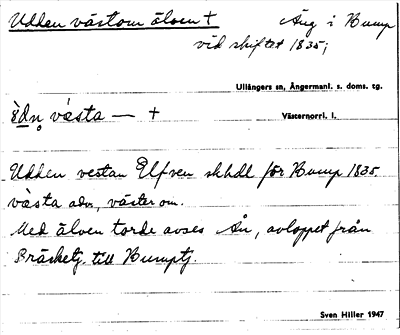 Udden västom älven +
Äng i Bump
vid skiftet 1835;
Ullångers sn, Ångermanl. s. doms. tg.
Västernorrl. l.
vàsta — +
Udden vestan Elfven skhdl för Bump 1835
vàsta adv, väster om.
Med älven torde avses Ån, avloppet från
Bräsketj. till Bumptj.
Sven Hiller 1947